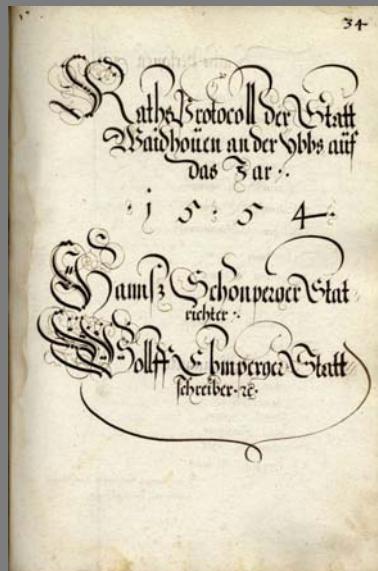 34
Raths Protocoll der Statt
Waidhouen an der Ybbs auf
das Jar :.
· 1 5 5 4 ·
Hannsz Schönperger Stat=
richter :.
Wolff Ebmperger Statt
schreiber · rc ·